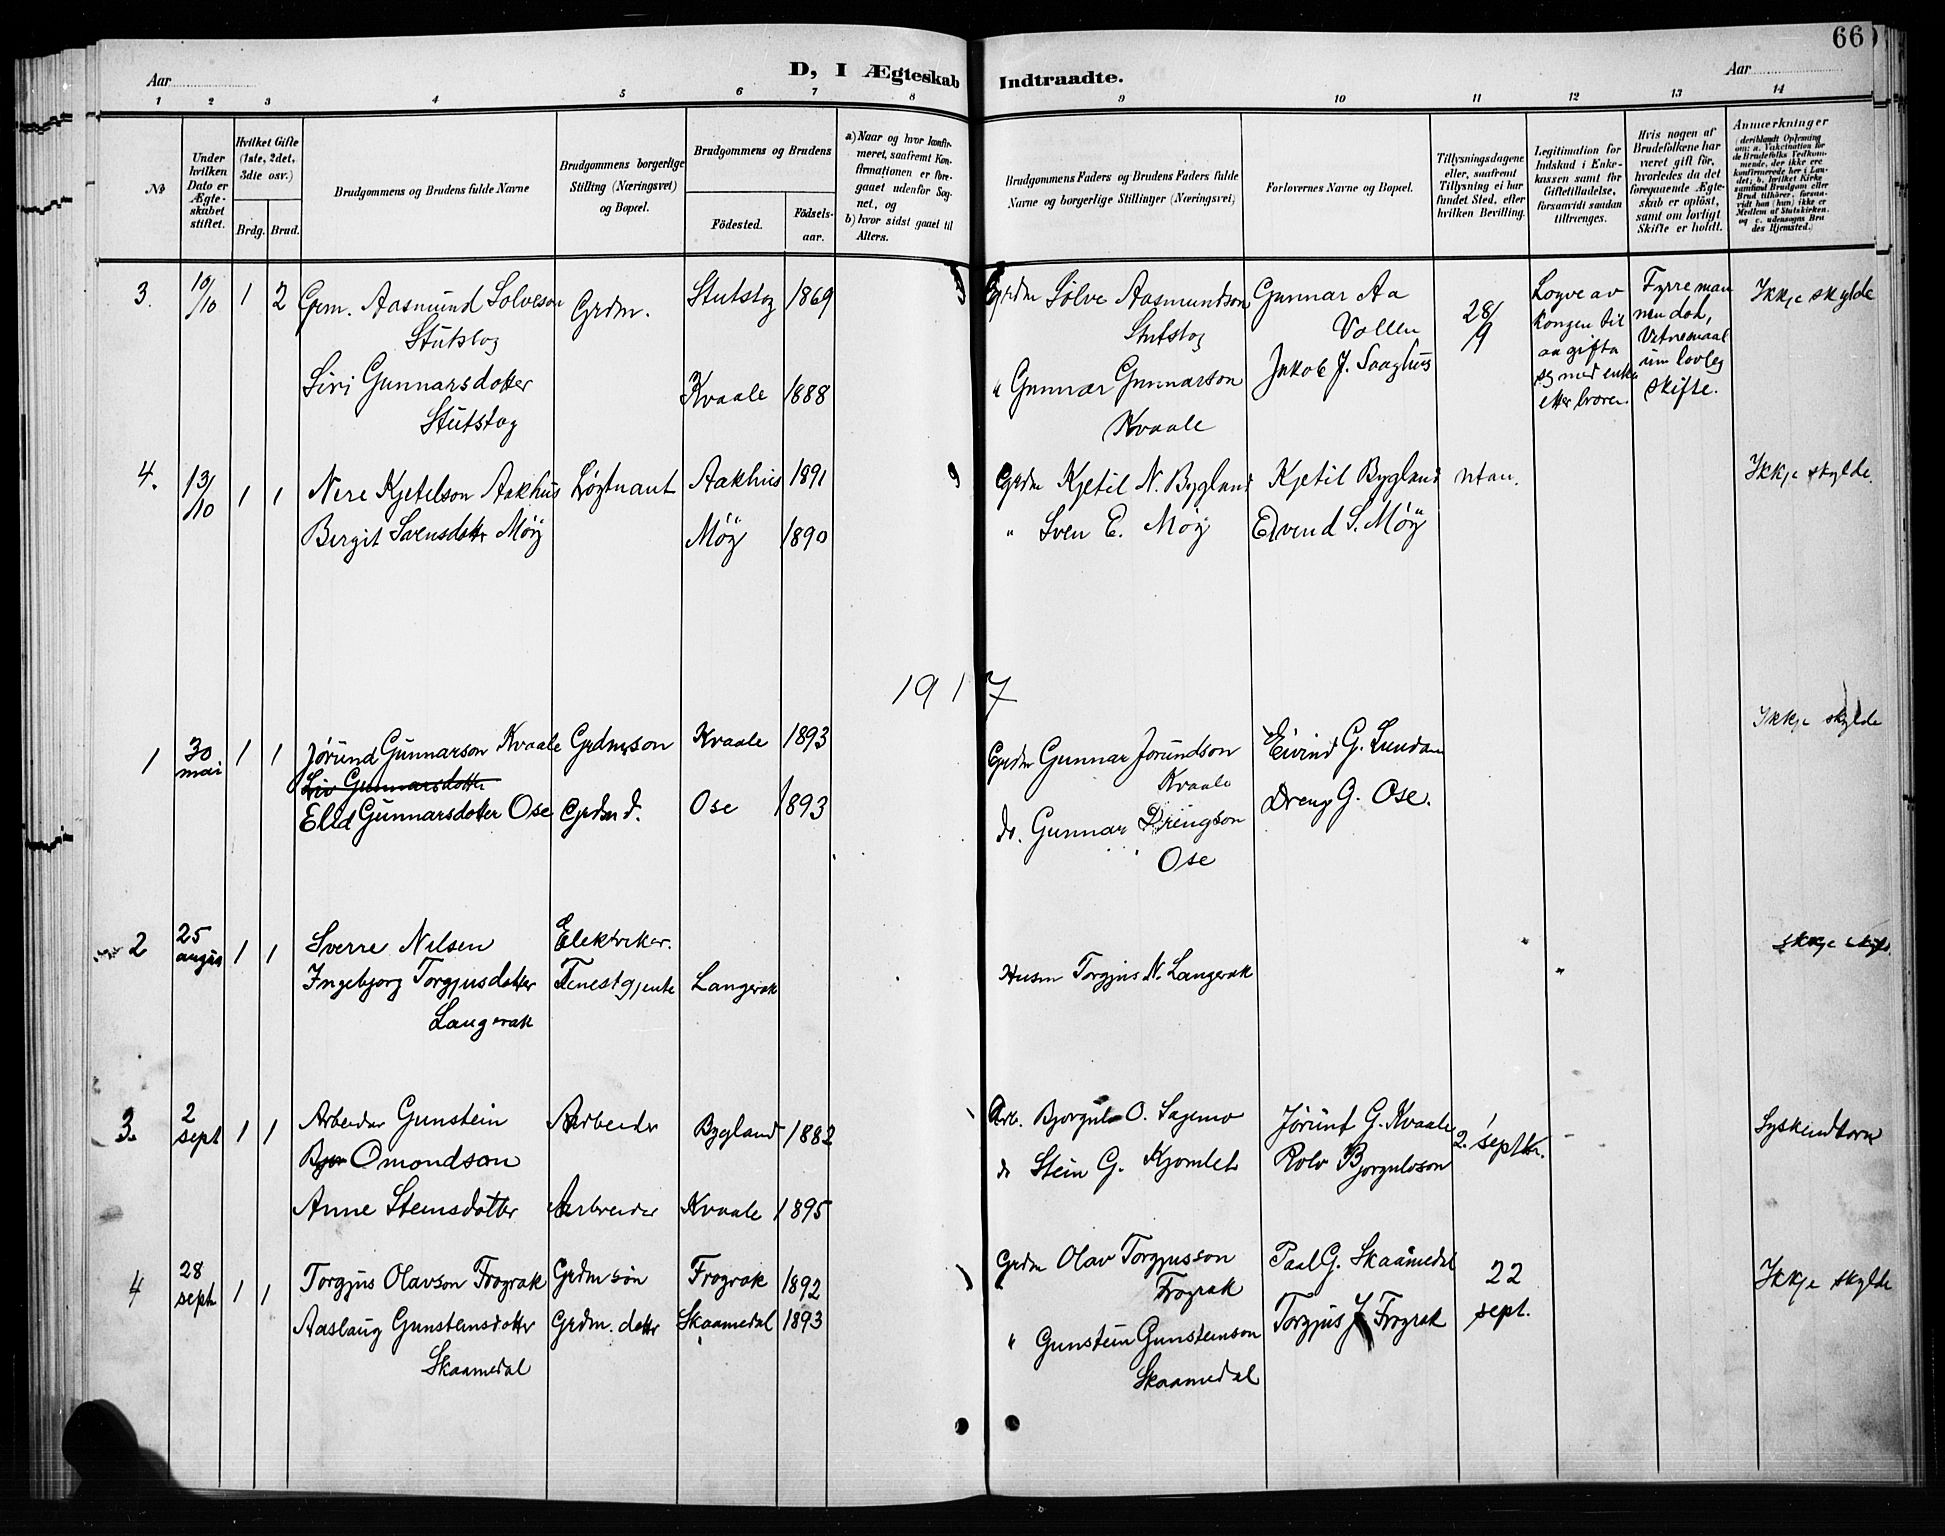 66
Aar
D, I Ægteskab Indtraadte.
Aar
1 2 3 4 5 6 7 8 9 10 11 12 13 14
No
Under hvilken Dato er Ægteskabet stiftet.
Hvilket Gifte (1ste, 2det, 3die osv.)
Brdg. Brud.
Brudgommens og Brudens fulde Navne
Brudgommens borgerlige Stilling (Næringsvei) og Bopæl.
Brudgommens og Brudens
Födested. Födselsaar.
a) Naar og hvor konfirmeret, saafremt Konfirmationen er foregaaet udenfor Sognet, og
b) hvor sidst gaaet til Alters.
Brudgommens Faders og Brudens Faders fulde Navne og borgerlige Stillinger (Næringsvei)
Forlovernes Navne og Bopæl.
Tillysningsdagene eller, saafremt Tillysning ei har fundet Sted, efter hvilken Bevilling.
Legitimation for Indskud i Enkekassen samt for Giftetilladelse, forsaavidt saadan tiltrænges.
Hvis nogen af Brudefolkene har været gift för, hvorledes da det foregaaende Ægteskab er oplöst, samt om lovligt Skifte er holdt.
Anmærkninger (deriblandt Oplysning om: a. Vakcination for de Brudefolks Vedkommende, der ikke ere konfirmerede her i Landet; b. hvilket Kirkesamfund Brudgom eller Brud tilhörer, forsaavidt han (hun) ikke er Medlem af Statskirken, og c. udensogns Brudes Hjemsted.)
3. 10/10 1 2 Grm. Aasmund Solveson Grdm. Stutstog 1869 Grdm Sölve Aasmundson Gunnar Aa 28/9 Logve av Fyrre man Ikkje skylde
Stutstog Stutstog Vollen kongen til nen død,
aa gifta Vitnemaal
Siri Gunnarsdotter Kvaale 1888 " Gunnar Gunnarson Jakob J. Saaghus seg med enka um lovleg
Stutstog Kvaale etter broren skifte.
4. 13/10 1 1 Nere Kjetelson Aakhus Løgtnant Aakhus 1891 Grdm Kjetil N. Bygland Kjetil Bygland utan. Ikkje skylde.
Bergit Svensdotter Möij Möij 1890 " Sven E. Möij Eivend S. Möij
1917
1 30 mai 1 1 Jørund Gunnarson Kvaale Grdmsson Kvaale 1893 Grdm Gunnar Jorundson Eivind G. Lunden Ikkje skylde
Liv Gunnarsdotter Kvaale
Eled Gunnarsdotter Ose Grdm d. Ose 1893 do. Gunnar Drengson Dreng G. Ose.
Ose
2 25 august 1 1 Sverre Nilsen Elektriker. Ikkje skyld.
Ingebjorg Torgjusdotter Tenestgjente Langerak Husm Torgjus N. Langerak "
Langerak
3. 2 sept 1 1 Arbeider Gunstein Arbeider Bygland 1882 Arb. Bjorgul O. Sagemo Jørunt G. Kvaale 2. septbr. Syskendborn
Omondson do Stein G. Kjomleb Rolv Bjorgulvson
Anne Steinsdotter Arbeider Kvaale 1895
4 28 sept 1 1 Torgjus Olavson Frograk Grdmsön Frograk 1892 Grdm Olav Torgjusson Paal G. Skaamedal 22 sept. Ikkje skylde
Frograk
Aaslaug Gunsteinsdotter Grdm. dotter Skaamedal 1893 " Gunstein Gunsteinson Torgjus J Frograk
Skaamedal Skaamedal